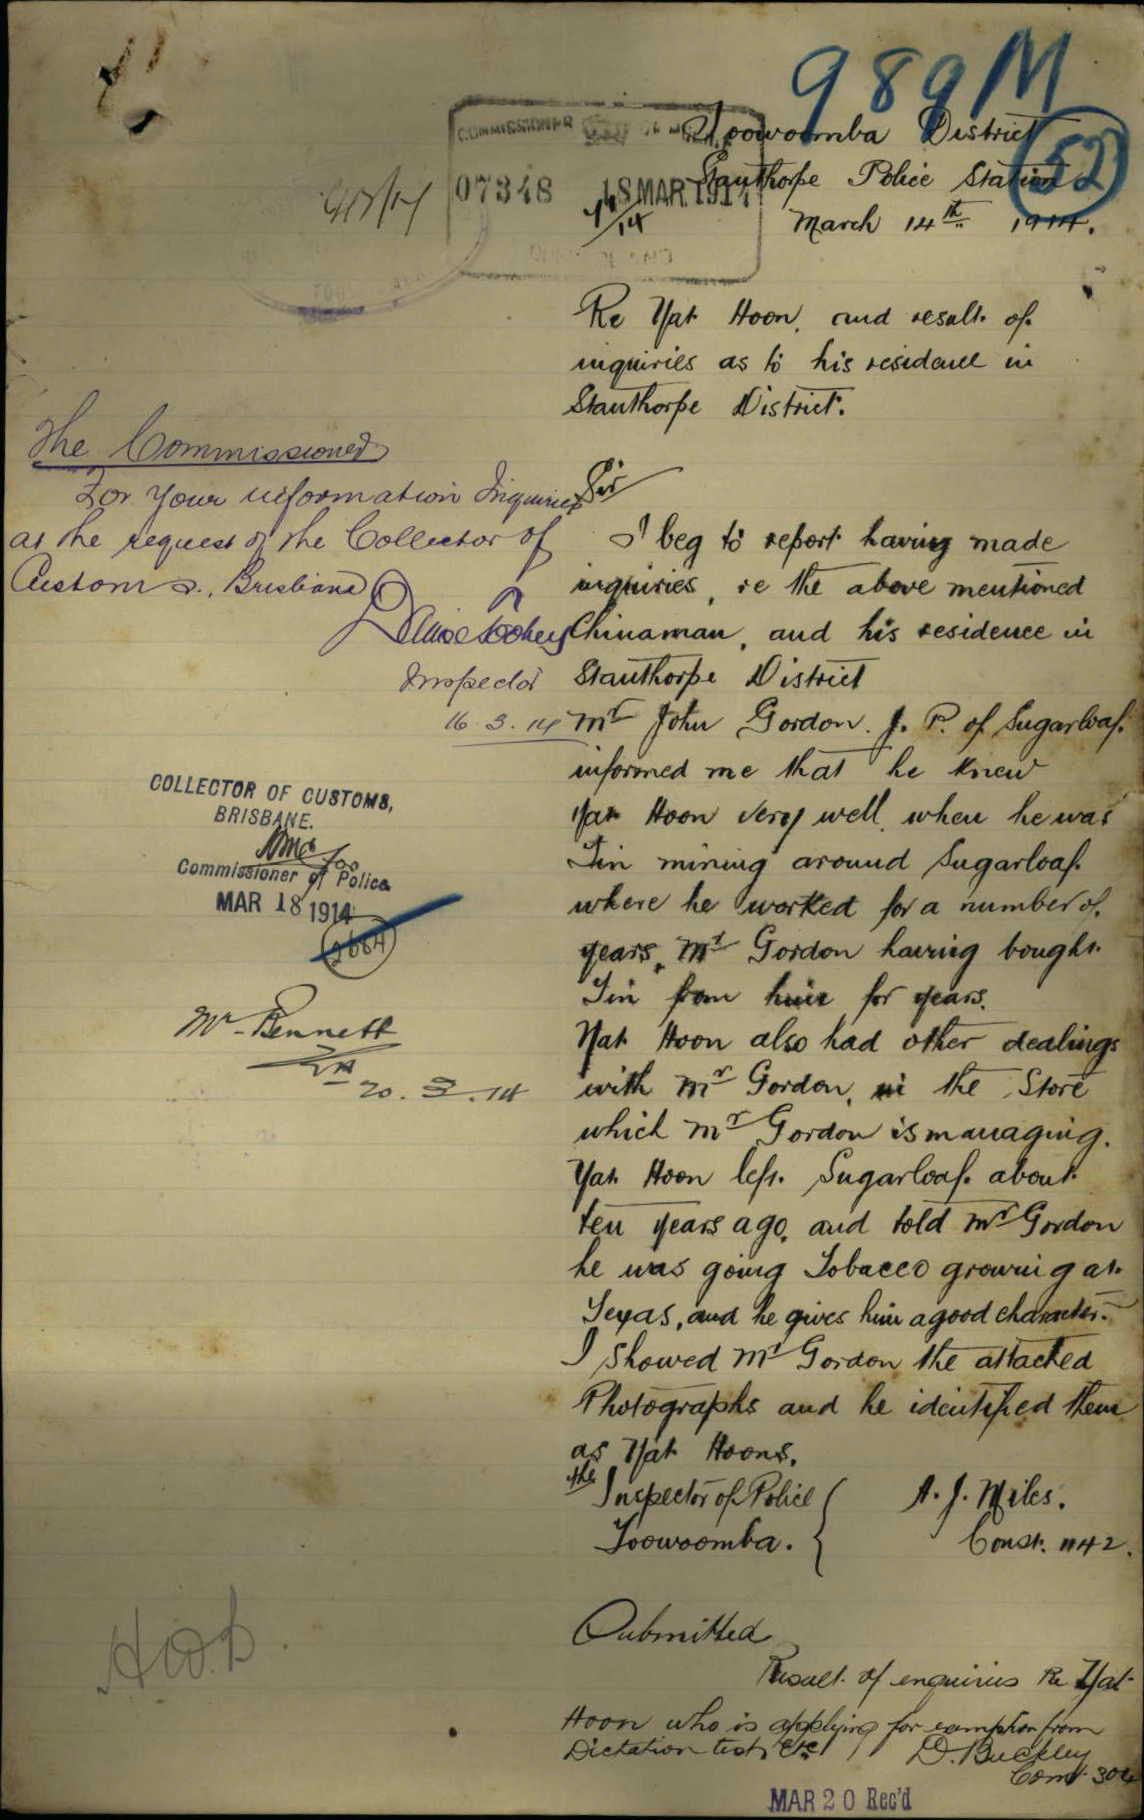 989M
52
COMMISSIONER
07348 18 MAR. 1914
Toowoomba District
Stanthorpe Police Station
March 14th 1914.
Re Yat Hoon, and result of
inquiries as to his residence in
Stanthorpe District.
Sir
I beg to report having made
inquiries, re the above mentioned
Chinaman, and his residence in
Stanthorpe District
Mr John Gordon. J. P. of Sugarloaf.
informed me that he knew
Yat Hoon very well, when he was
Tin mining around Sugarloaf.
where he worked for a number of
years, Mr Gordon having bought
Tin from him for years.
Yat Hoon also had other dealings
with Mr Gordon, in the Store
which Mr Gordon is managing.
Yat Hoon left Sugarloaf about
ten years ago, and told Mr Gordon
he was going Tobacco growing at
Texas, and he gives him a good character.
I showed Mr Gordon the attached
Photographs and he identified them
as Yat Hoons.
The Inspector of Police
Toowoomba.
A. J. Miles.
Const. 1142.
The Commissioner
For your information Inquiries
at the request of the Collector of
Customs, Brisbane
Inspector
16.3.14
COLLECTOR OF CUSTOMS,
BRISBANE.
for
Commissioner of Police
MAR 18 1914
2664
Mr Bennett
20.3.14
H.W.B.
Submitted
Result of enquiries Re Yat
Hoon who is applying for exemption from
Dictation test, etc
D. Buckley
MAR 20 Rec'd